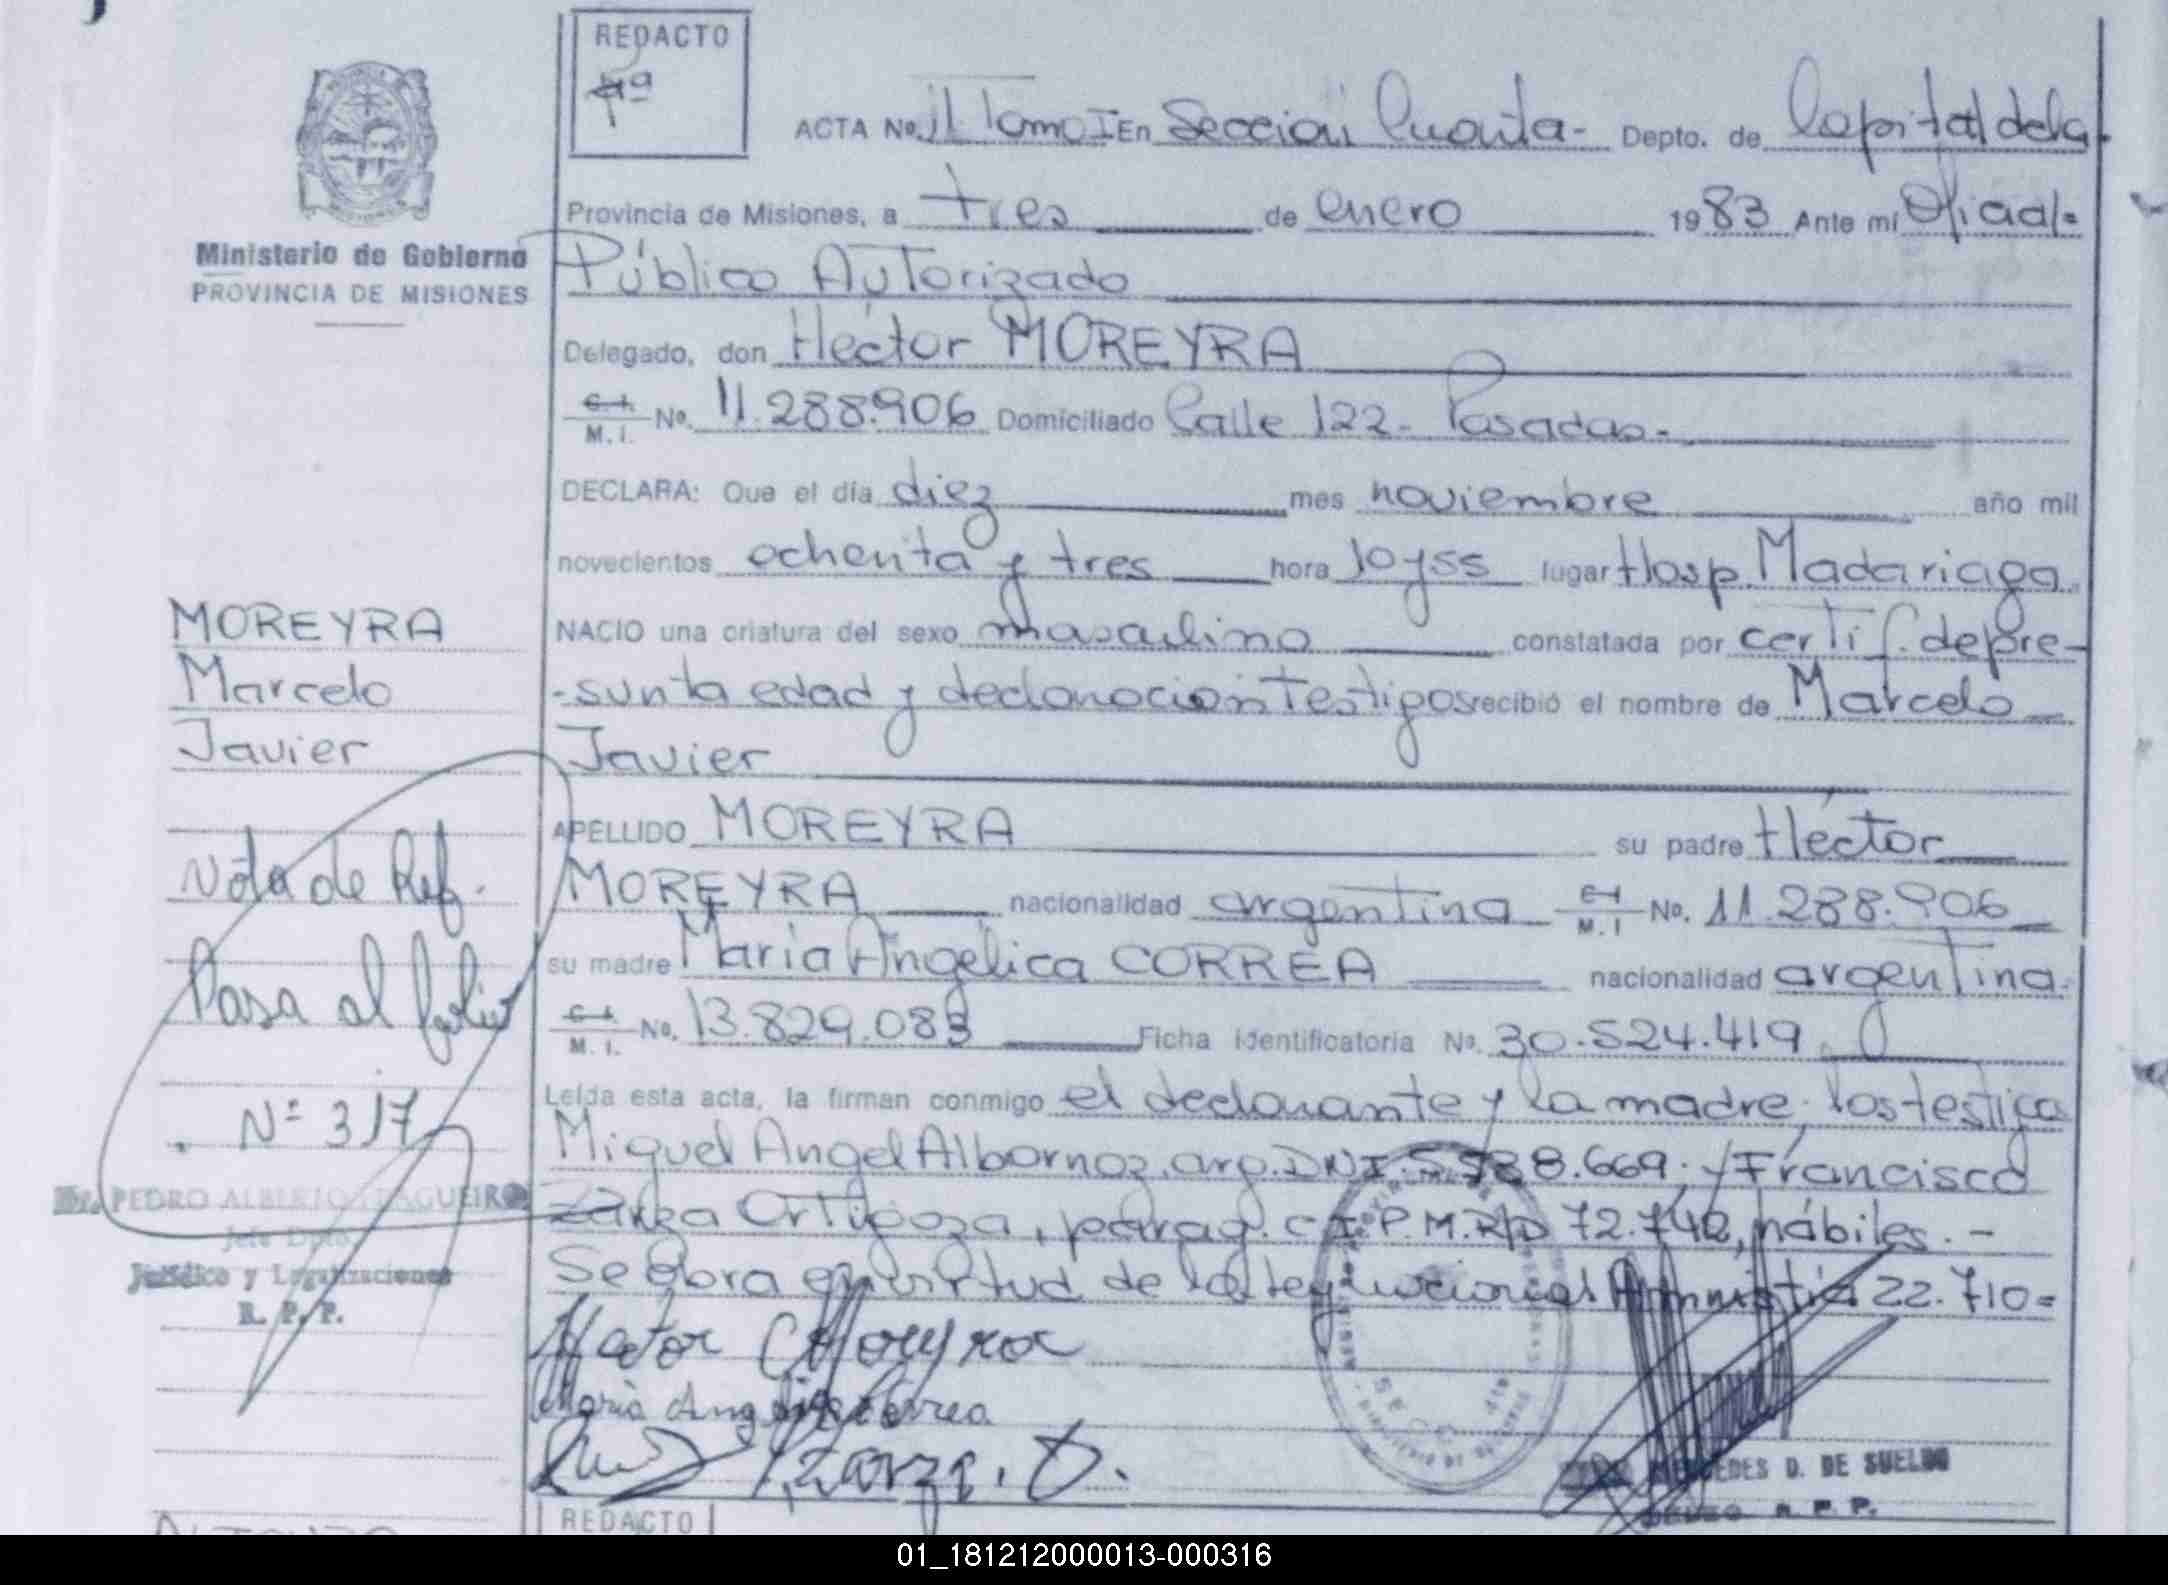 REDACTO
4ª
ACTA No. 11 Tomo I En Sección Cuarta- Depto. de Capital de la
Provincia de Misiones, a tres de enero 1983 Ante mi Oficial
Público Autorizado
Ministerio de Gobierno
PROVINCIA DE MISIONES
Delegado, don Héctor MOREYRA
C.I. M.I. No. 11.288.906 Domiciliado Calle 122- Posadas-
DECLARA: Que el día diez mes noviembre año mil
novecientos ochenta y tres hora 10 y 55 lugar Hosp. Madariaga
NACIO una criatura del sexo masculino constatada por certif. de pre-
-sunta edad y declaración testigos recibió el nombre de Marcelo
Javier
MOREYRA
Marcelo
Javier
APELLIDO MOREYRA su padre Héctor
MOREYRA nacionalidad argentina C.I. M.I No. 11.288.906
su madre María Angélica CORREA nacionalidad argentina
C.I. M.I. No. 13.829.083 Ficha identificatoria No. 30.524.419
Leída esta acta, la firman conmigo el declarante y la madre, los testigos
Miguel Angel Albornoz, arg. DNI. 669, y Francisco
Zarza Ortigoza, parag. C.I.P.M.R/D 72.742, hábiles. -
Se labra en virtud de la ley nacional Amnistía 22.710=
Nota de Ref.
Pasa al folio
Nº 317
Dr. PEDRO ALBERTO
Jefe Dpto.
Jurídico y Legalizaciones
R. P. P.
Hector Moreyra
María Angelica Correa
Zarza. O.
MERCEDES D. DE SUELDO
R. P. P.
REDACTO
01_181212000013-000316